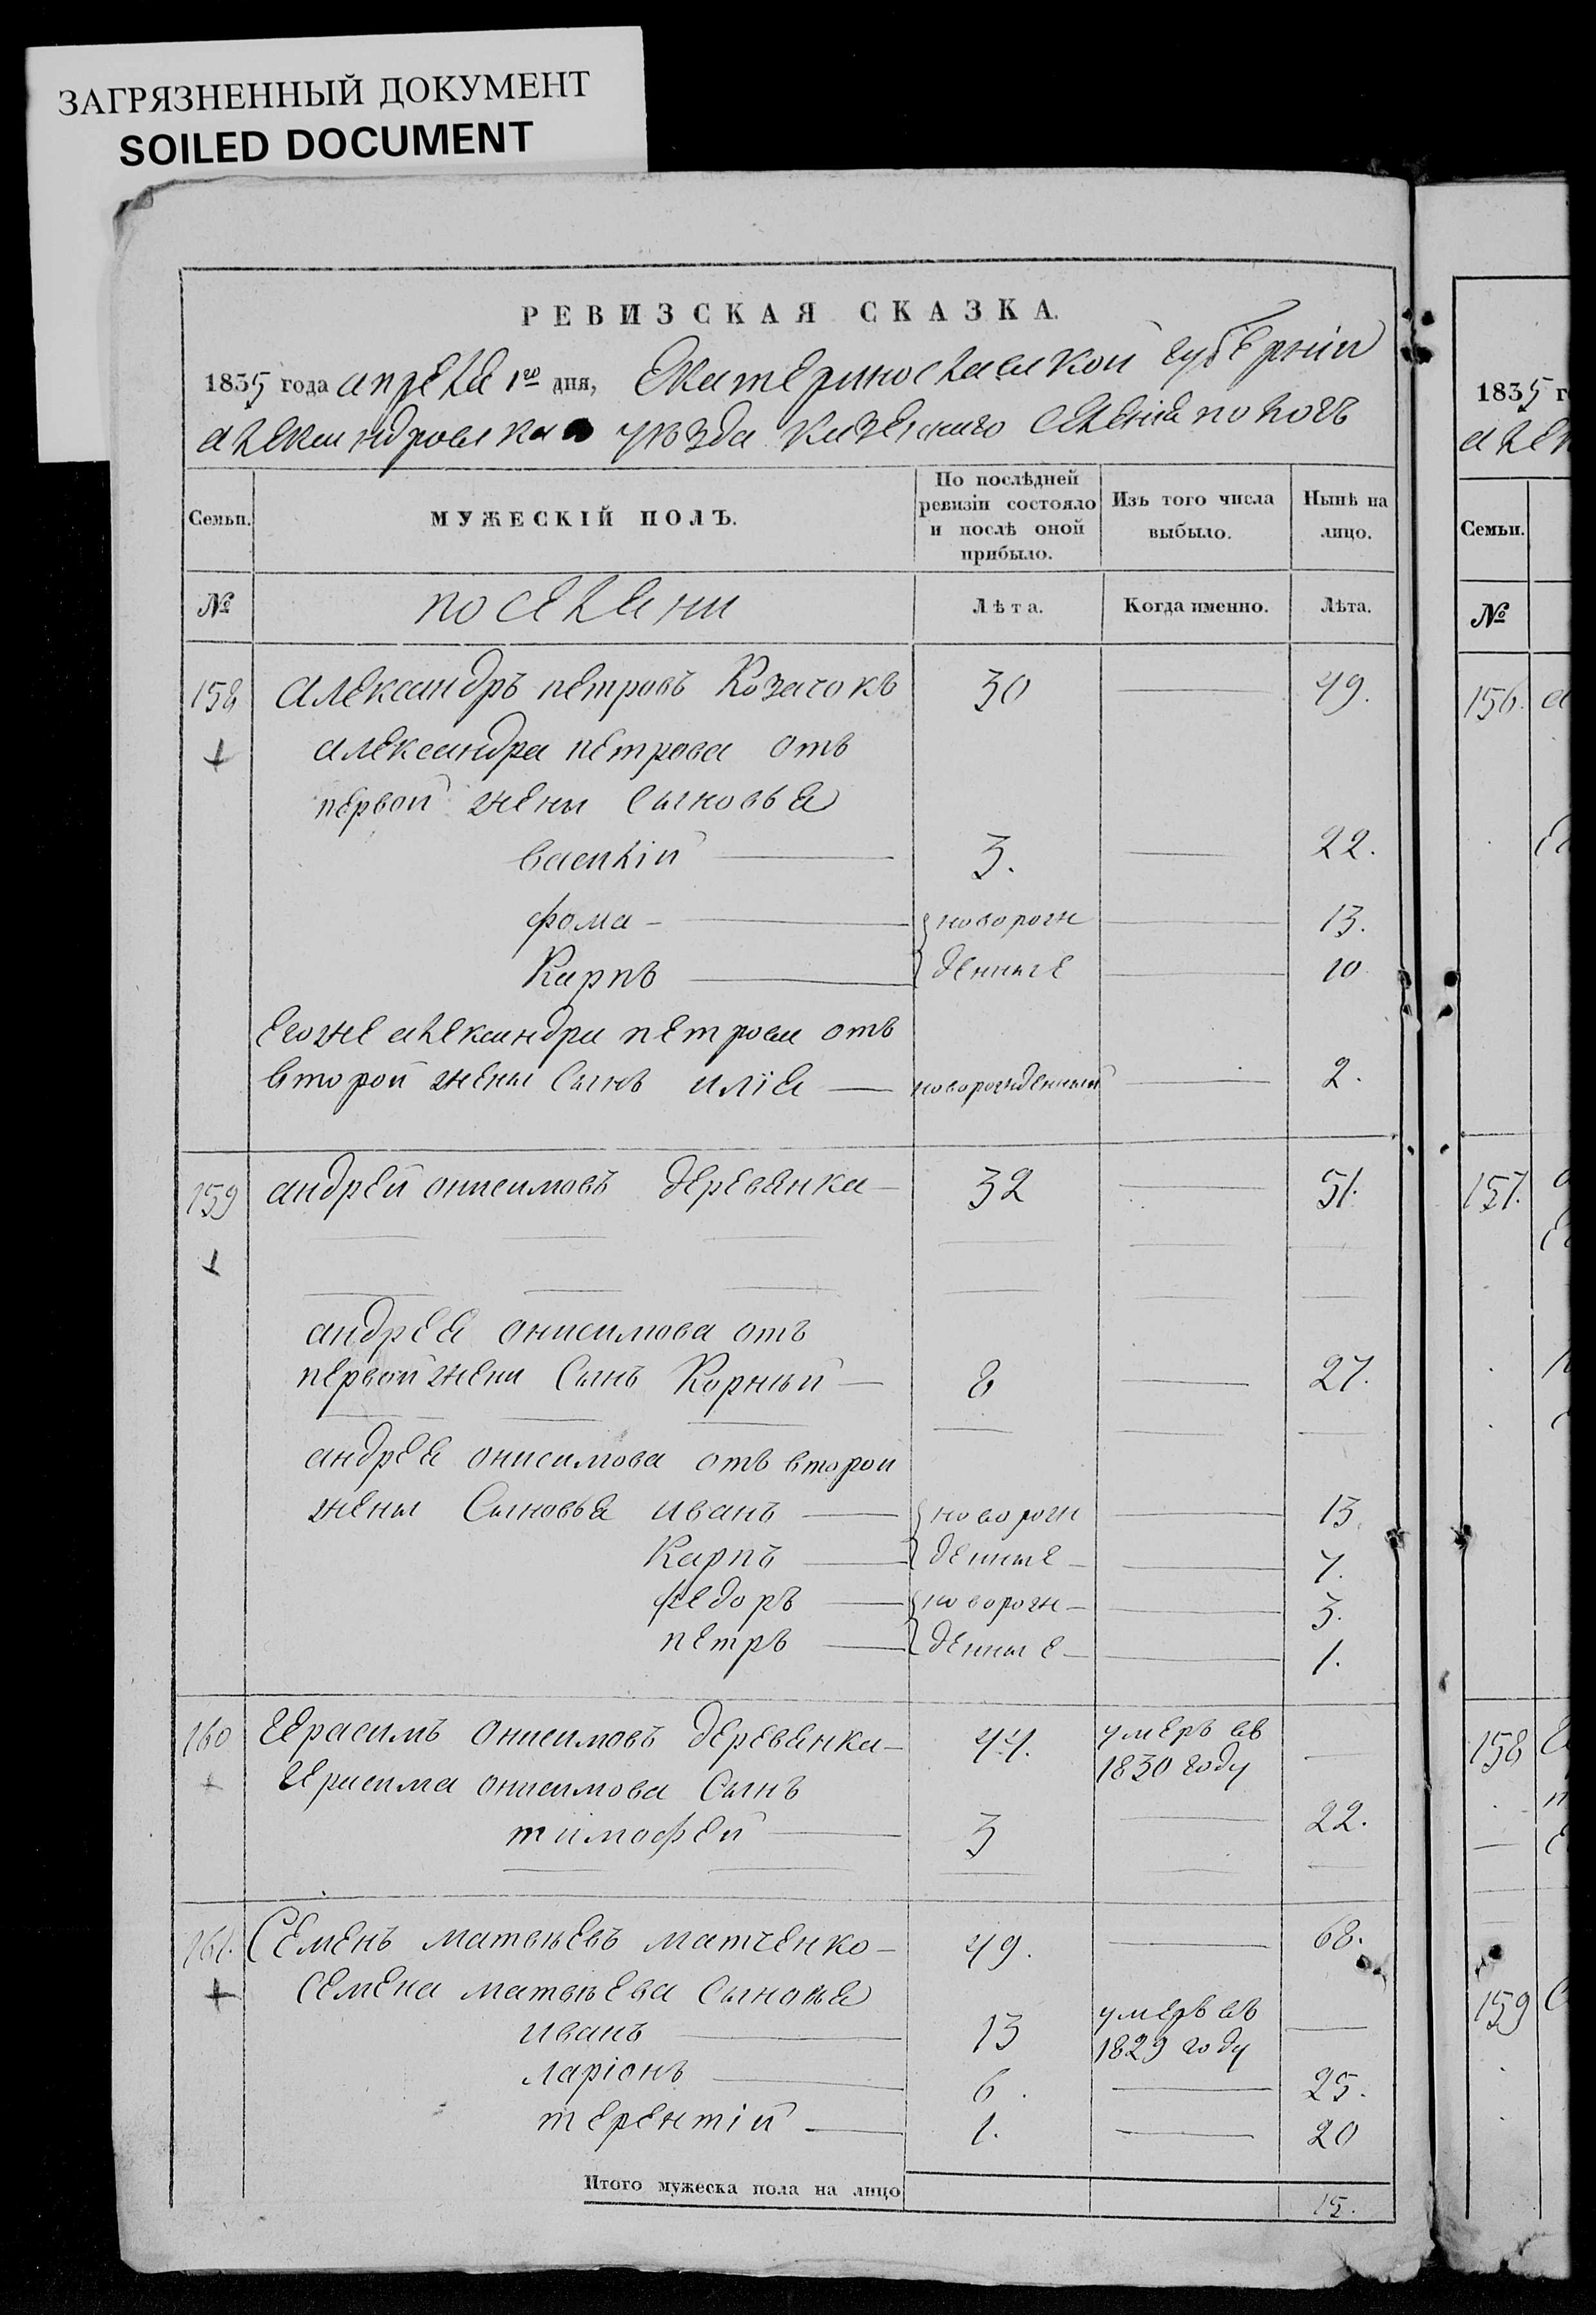 ЗАГРЯЗНЕННЫЙ ДОКУМЕНТ
SOILED DOCUMENT
РЕВИЗСКАЯ СКАЗКА.
1835 года апреля 1го дня, Екатеринославской губернии
александровска уѣзда казеннаго селения пологъ
Семьи.
МУЖЕСКІЙ ПОЛЪ.
По послѣдней ревизіи состояло и послѣ оной прибыло.
Изъ того числа выбыло.
Нынѣ на лицо.
№ поселяни Лѣта. Когда именно. Лѣта.
158 Александръ петровъ Козачокъ 30 49.
александра петрова отъ
первой жены сыновья
василій 3. 22.
фома новорож 13.
Карпъ денные 10
егоже александра петрова отъ
второй жены сынъ илія новорожденный 2.
159 андрей онисимовъ деревянка 32 51.
андрея онисимова отъ
первой жени сынъ Корный 8 27.
андрея онисимова отъ второй
жены Сыновья иванъ новорож 13.
Карпъ денные 7.
федоръ новорож 3.
петръ денные 1.
160 Герасимъ онисимовъ деревянка 44. умеръ въ 1830 году
Герасима онисимова Сынъ
тимофей 3 22.
161. Семенъ матвѣевъ матченко 49. 68.
семена матвѣева сыновья
иванъ 13 умеръ въ 1829 году
ларіонъ 6. 25.
терентій 1. 20
Итого мужеска пола на лицо 15.
1835 г
Семьи.
№
156.
157.
158
159